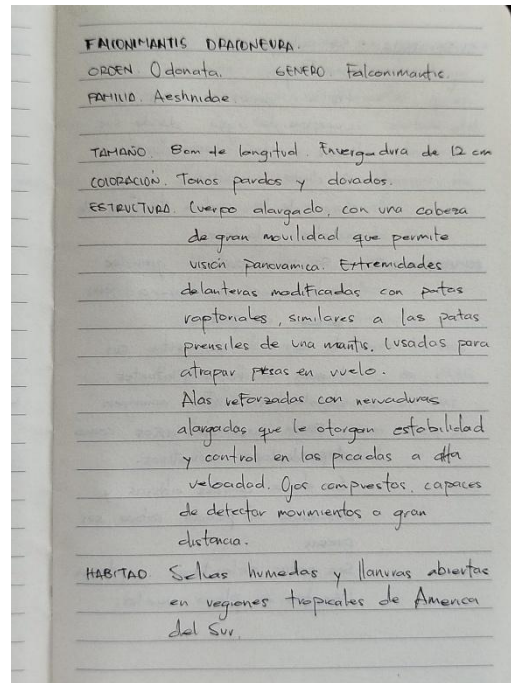 FALCONIMANTIS DRACONEURA.
ORDEN. Odonata. GENERO Falconimantis.
FAMILIA. Aeshnidae
TAMAÑO. 8cm de longitud. Envergadura de 12 cm
COLORACIÓN. Tonos pardos y dorados.
ESTRUCTURA. Cuerpo alargado, con una cabeza
de gran movilidad que permite
visión panoramica. Extremidades
delanteras modificadas con patas
raptoriales, similares a las patas
prensiles de una mantis. Usadas para
atrapar presas en vuelo.
Alas reforzadas con nervaduras
alargadas que le otorgan estabilidad
y control en las picadas a alta
velocidad. Ojos compuestos, capaces
de detectar movimientos a gran
distancia.
HABITAD. Selvas humedas y llanuras abiertas
en regiones tropicales de America
del Sur.